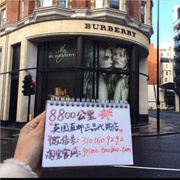 BURBERRY
BURBERRY
8800公里
英国直邮正品代购店
微信号: 3101609292
淘宝官网: yrino.taobao.com